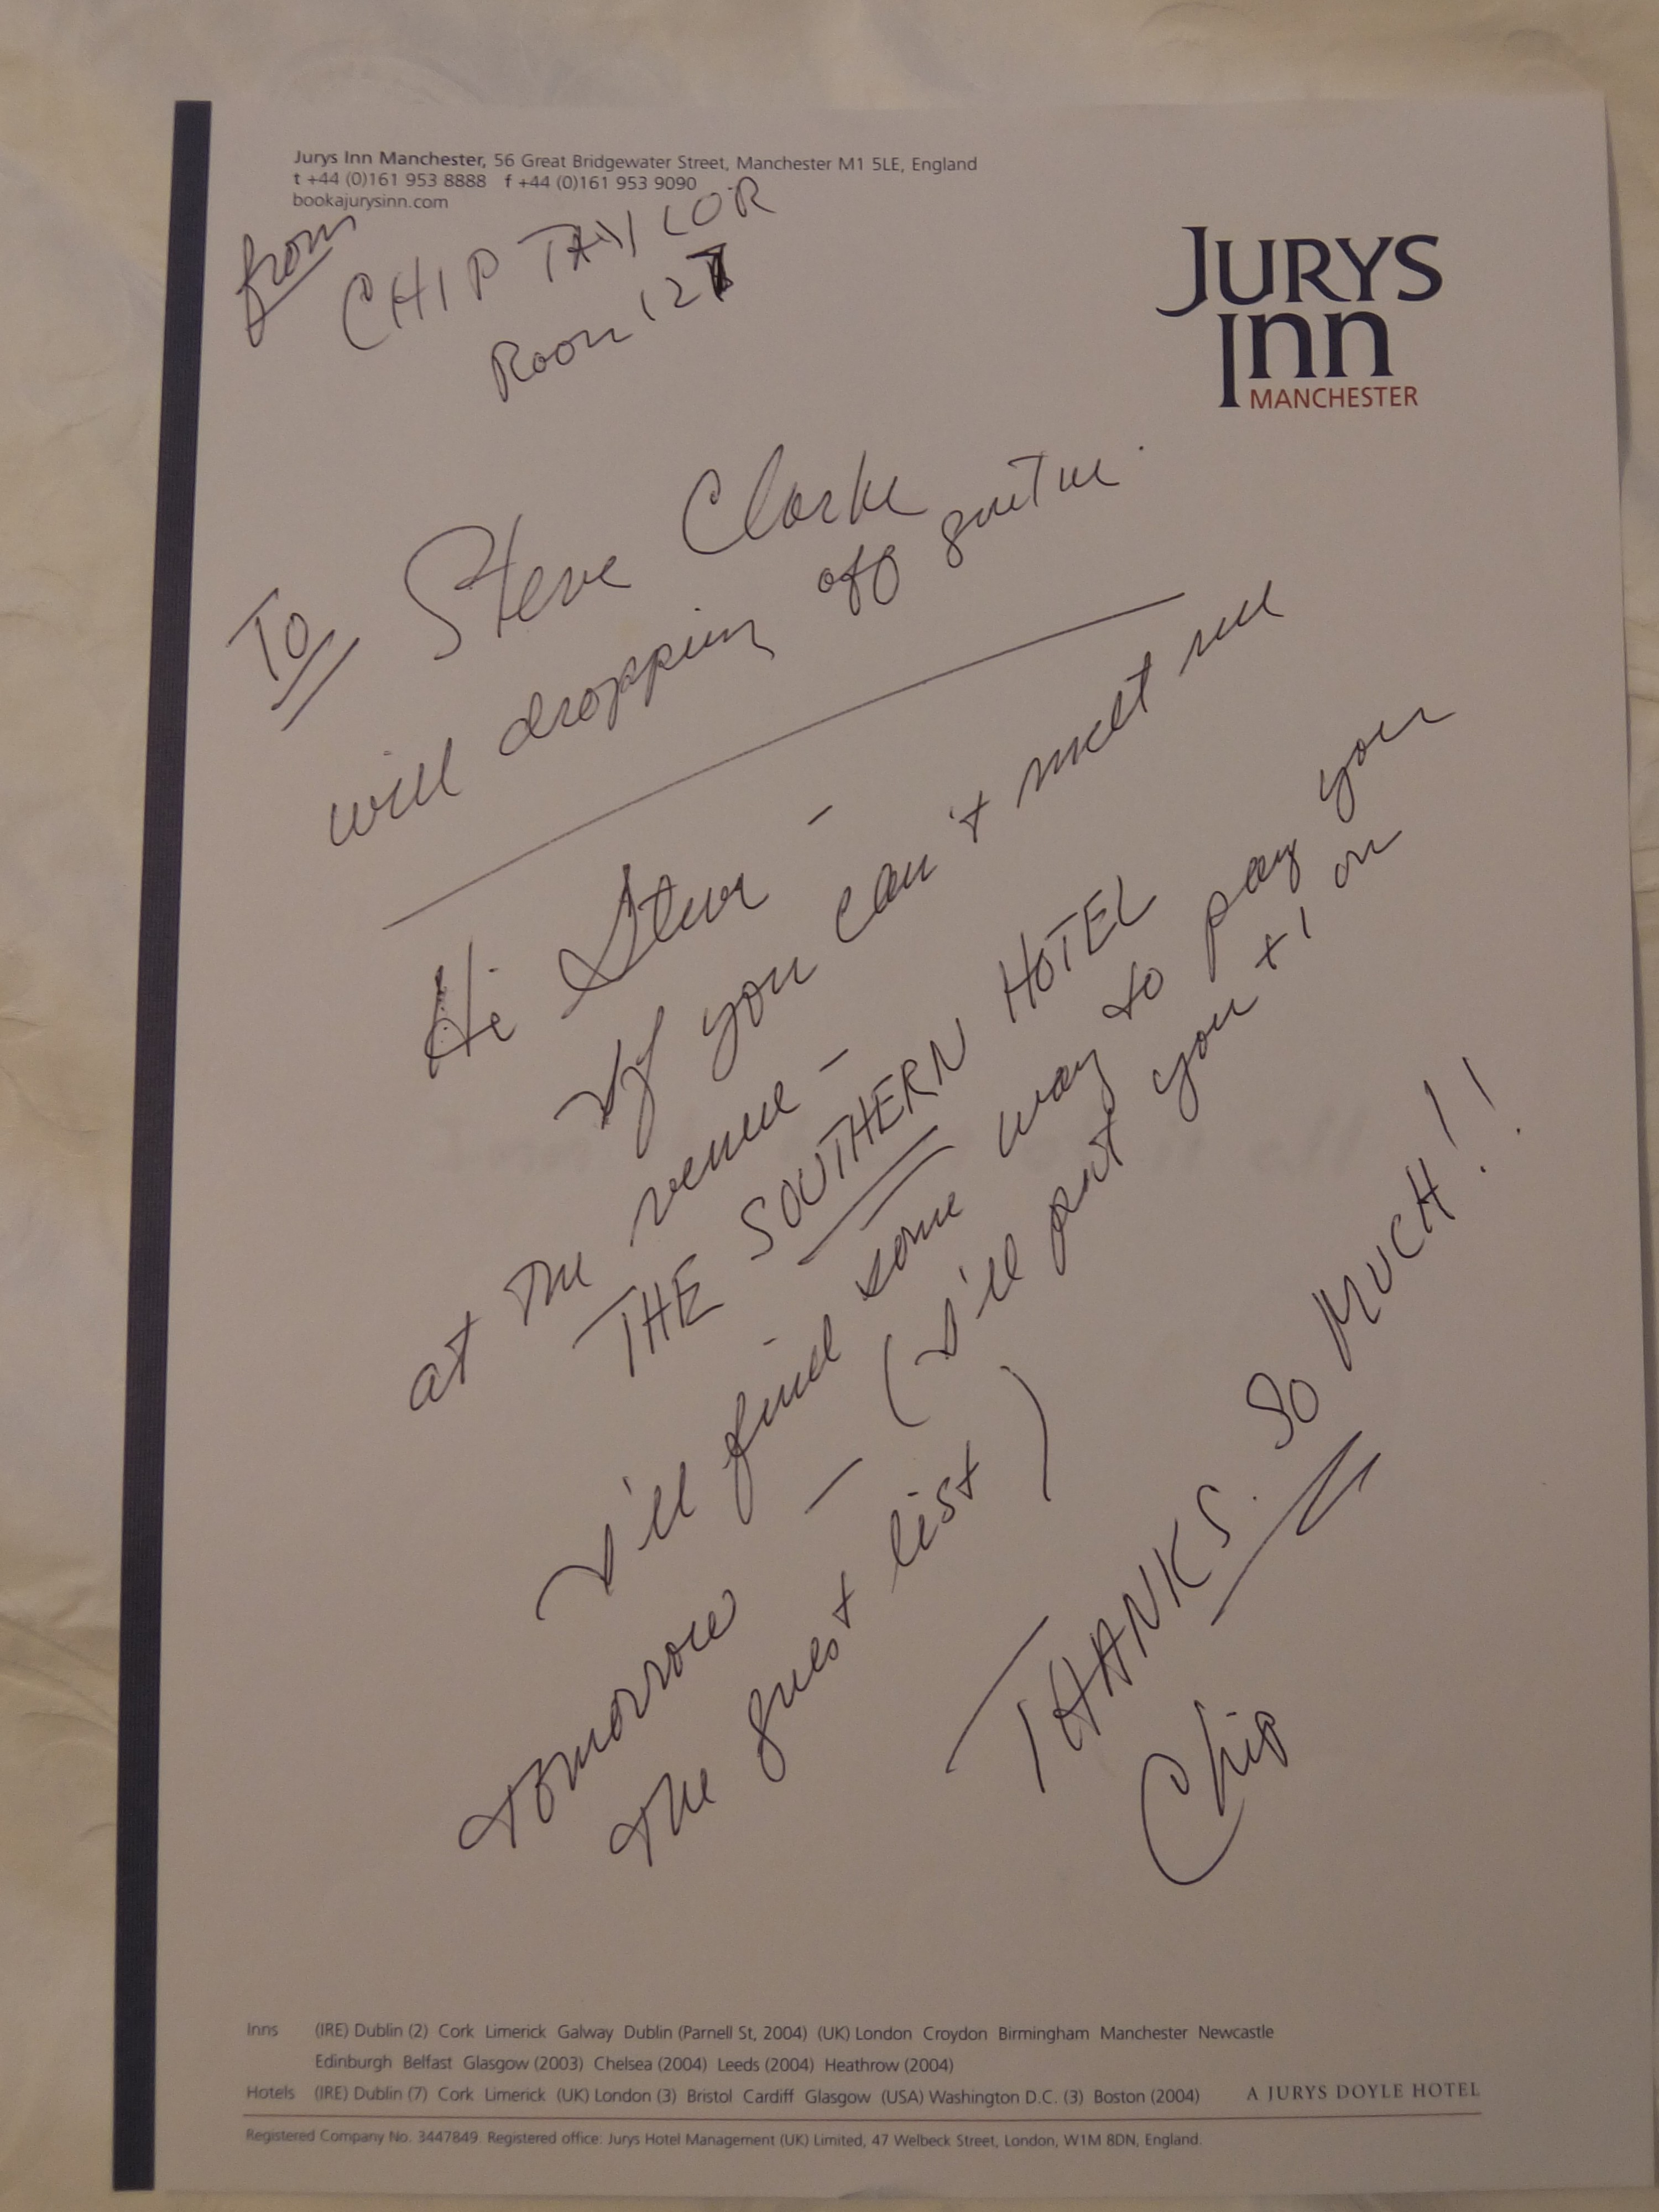 Jurys Inn Manchester, 56 Great Bridgewater Street, Manchester M1 5LE, England
t +44 (0)161 953 8888 f +44 (0)161 953 9090
bookajurysinn.com
JURYS
Inn
MANCHESTER
from
CHIP TAYLOR
Room 127
To Steve Clarke
will dropping off guitar.
Hi Steve –
If you can't meet me
at the venue –
THE SOUTHERN HOTEL
I'll find some way to pay you
tomorrow – (I'll put you +1 on
the guest list)
THANKS SO MUCH!!
Chip
Inns (IRE) Dublin (2) Cork Limerick Galway Dublin (Parnell St, 2004) (UK) London Croydon Birmingham Manchester Newcastle
Edinburgh Belfast Glasgow (2003) Chelsea (2004) Leeds (2004) Heathrow (2004)
Hotels (IRE) Dublin (7) Cork Limerick (UK) London (3) Bristol Cardiff Glasgow (USA) Washington D.C. (3) Boston (2004) A JURYS DOYLE HOTEL
Registered Company No. 3447849. Registered office: Jurys Hotel Management (UK) Limited, 47 Welbeck Street, London, W1M 8DN, England.